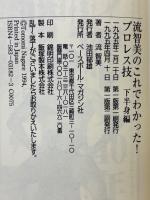 流智美のこれでわかった!
プロレス技　下半身編
一九九五年二月二十日　第一版第一刷発行
一九九五年四月十日　第一版第二刷発行
著　者　流　智美
発行人　池田郁雄
発行所　ベースボール・マガジン社
〒101　東京都千代田区三崎町
印　刷　錦明印刷株式会社
製　本　飯塚製本株式会社
乱丁・落丁がございましたらお取りかえいたします。
©Tomomi Nagare 1994.
Printed in Japan
ISBN4-583-03182-3 C0075